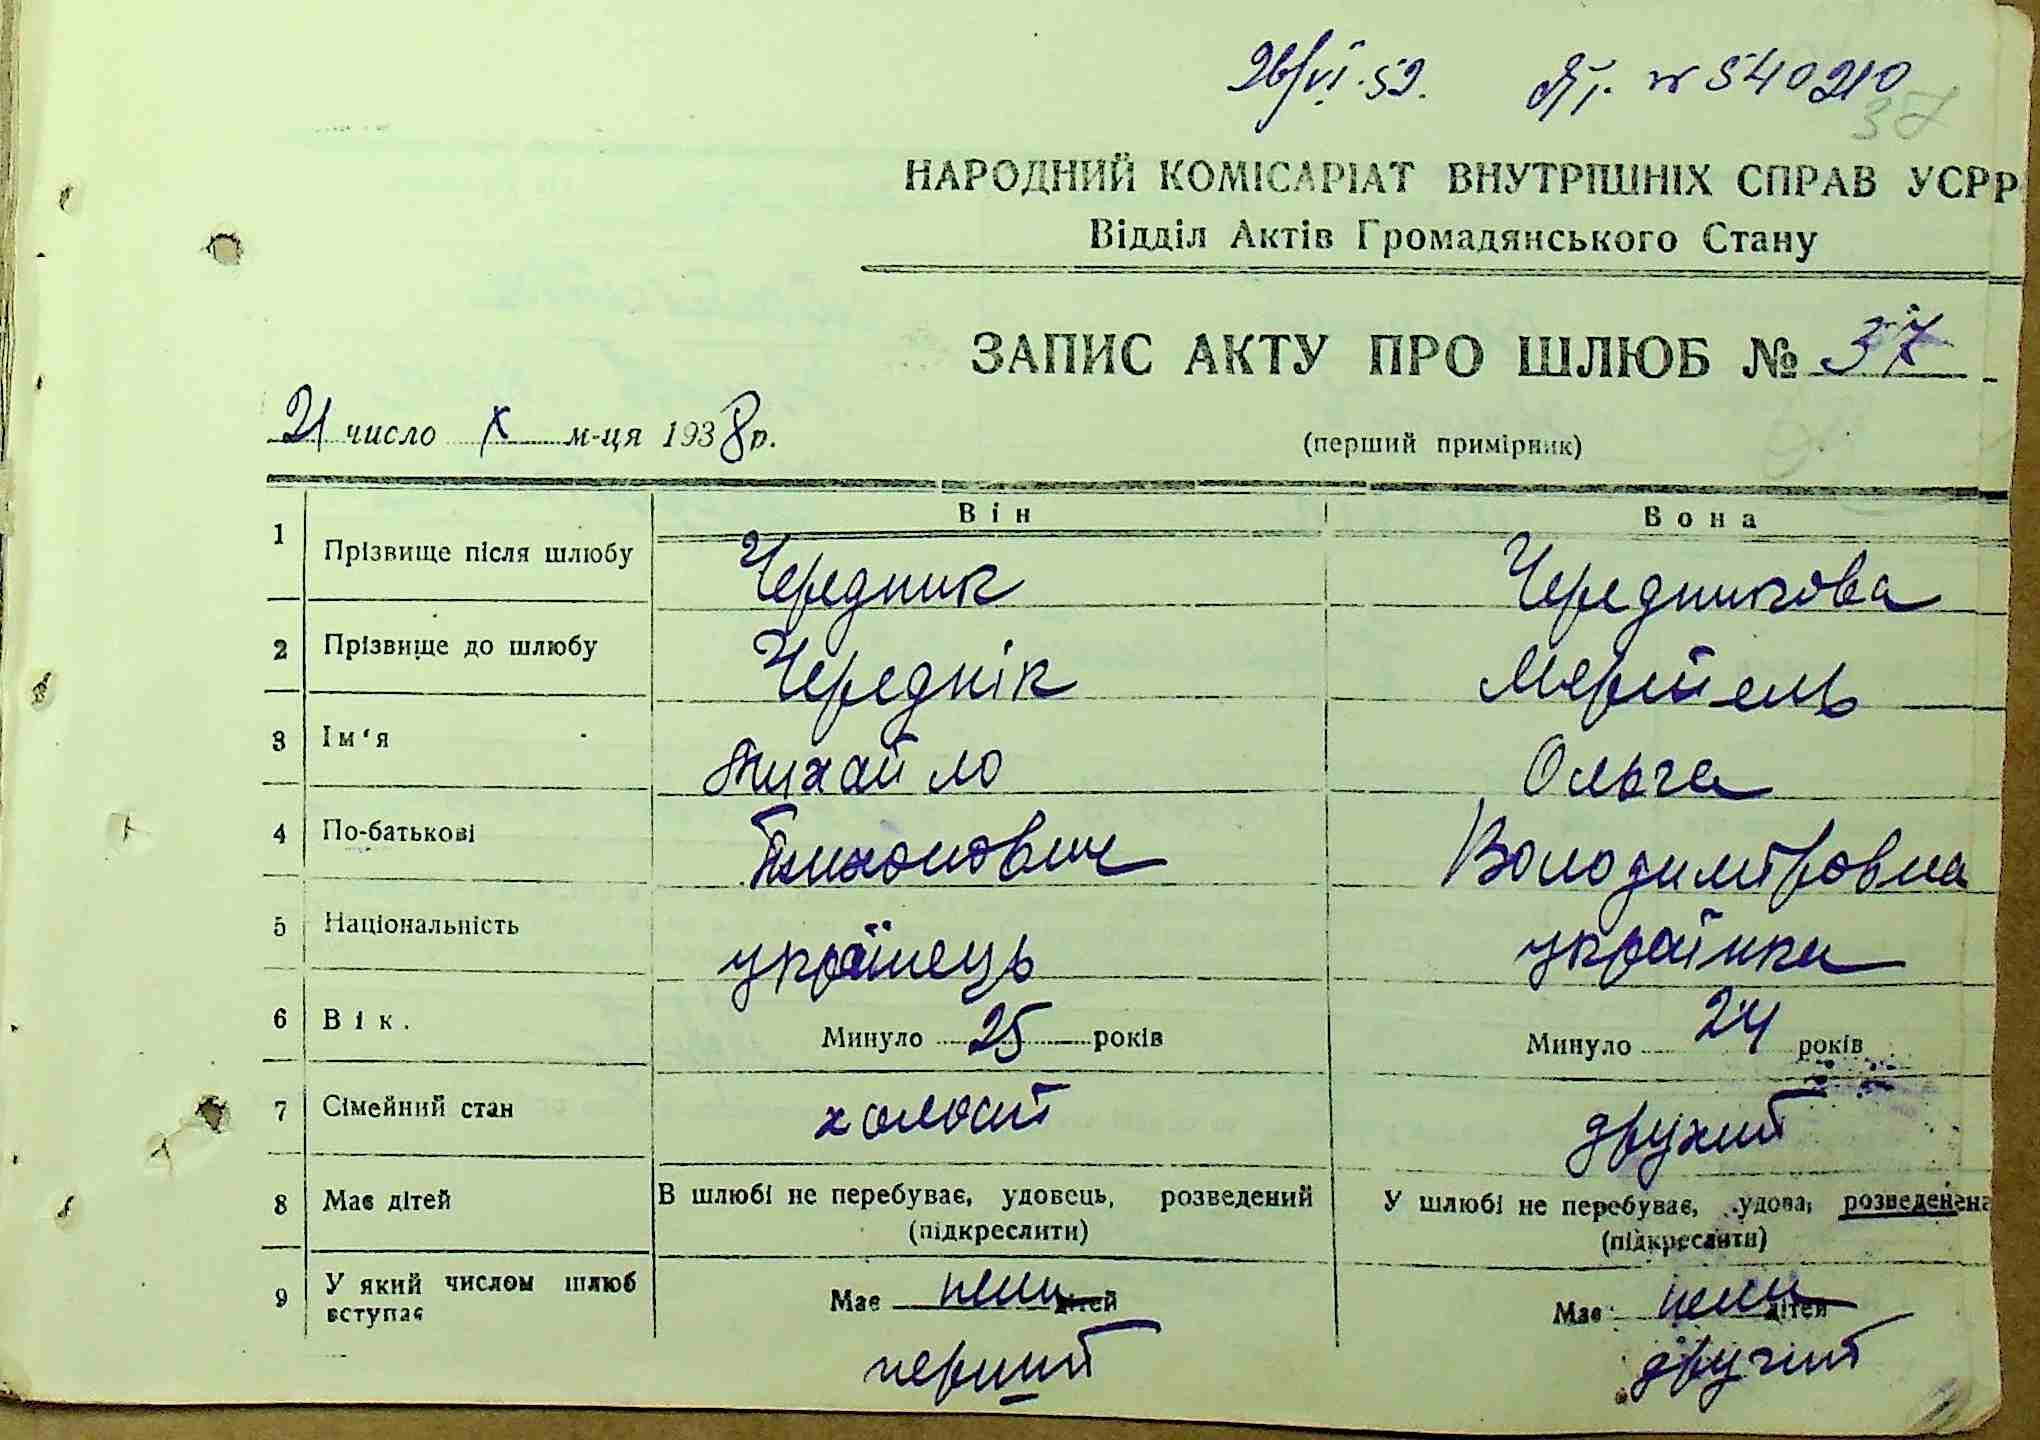 26/VI.52. № 540210
37
НАРОДНИЙ КОМІСАРІАТ ВНУТРІШНІХ СПРАВ УСРР
Відділ Актів Громадянського Стану
ЗАПИС АКТУ ПРО ШЛЮБ № 37
21 число X м-ця 1938 р.
(перший примірник)
Він Вона
1 Прізвище після шлюбу Чередник Чередникова
2 Прізвище до шлюбу Череднік
3 Ім'я Михайло Ольга
4 По-батькові Тихонович Володимировна
5 Національність українець українка
6 Вік. Минуло 25 років Минуло 24 років
7 Сімейний стан холост
8 Має дітей В шлюбі не перебуває, удовець, розведений У шлюбі не перебуває, удова, розведенена
(підкреслити) (підкреслити)
9 У який числом шлюб вступає Має нема дітей Має нема дітей
перший другий